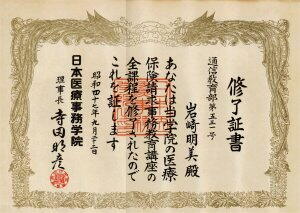 修了証書
通信教育部第五三一号
岩崎明美殿
あなたは当学院の医療
保険請求事務教育講座の
全課程を修了されたので
これを証します
昭和四十七年九月三十日
日本医療事務学院
理事長 寺田明彦